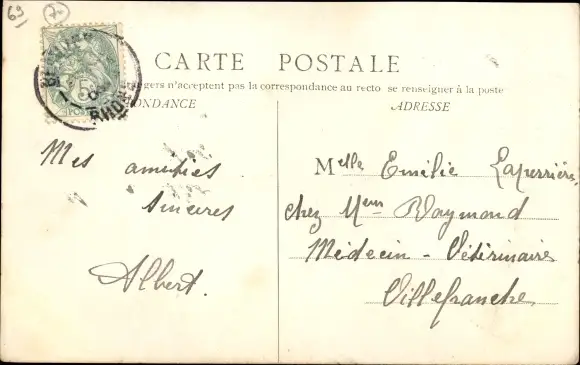 69
CARTE POSTALE
gers n'acceptent pas la correspondance au recto se renseigner à la poste
ONDANCE
ADRESSE
5
RHONE
Mes amitiés
Sincères
Albert.
Melle Emilie Laperrière
chez Meur Raymond
Médecin - Vétérinaire
Villefranche